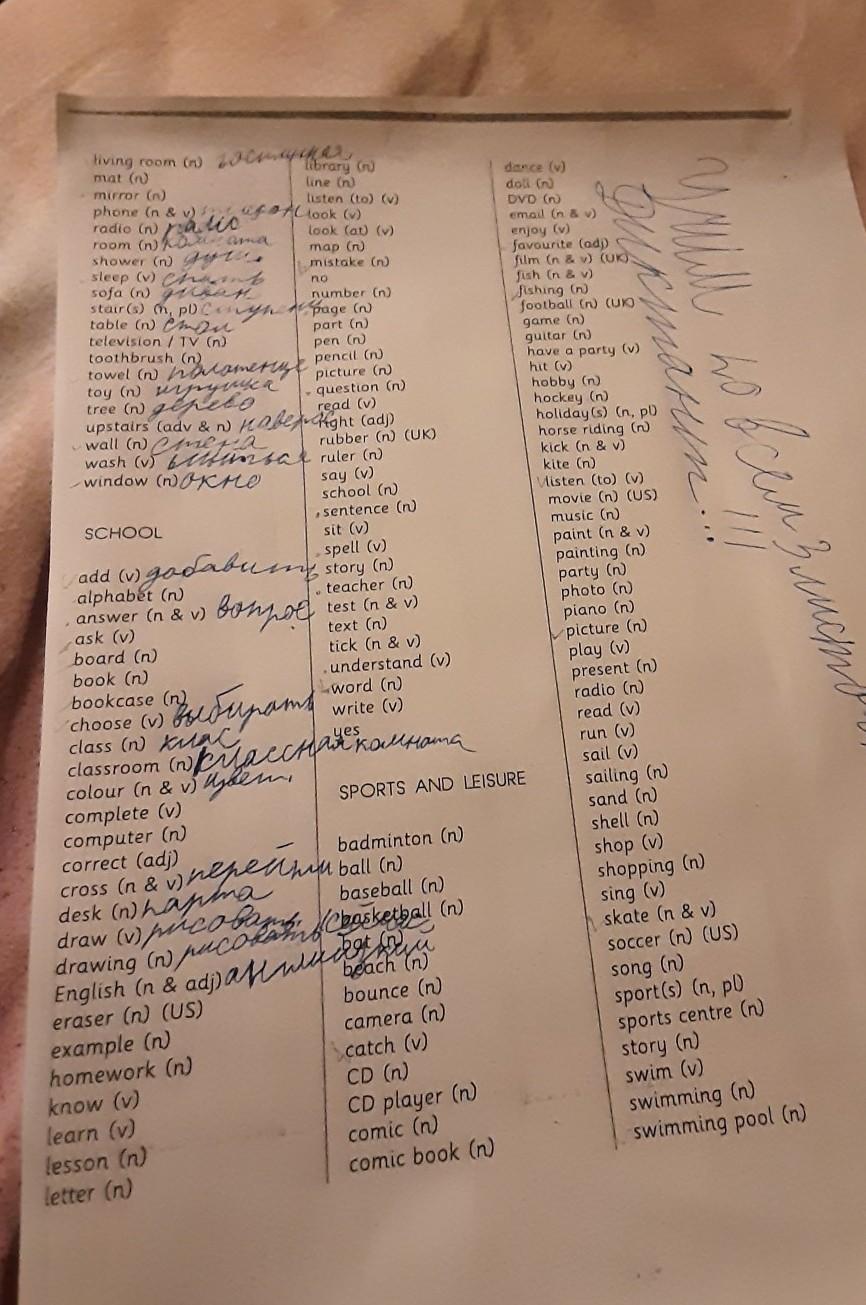 living room (n) гостиная
mat (n)
mirror (n)
phone (n & v)
radio (n) радио
room (n) комната
shower (n) душ
sleep (v) спать
sofa (n) диван
stair(s) (n, pl) ступени
table (n) стол
television / TV (n)
toothbrush (n)
towel (n) полотенце
toy (n) игрушка
tree (n) дерево
upstairs (adv & n)
wall (n) стена
wash (v)
window (n) окно
SCHOOL
add (v) добавить
alphabet (n)
answer (n & v) вопрос
ask (v)
board (n)
book (n)
bookcase (n)
choose (v) выбирать
class (n) клас
classroom (n) классная комната
colour (n & v) цвет
complete (v)
computer (n)
correct (adj)
cross (n & v) перейти
desk (n) парта
draw (v) рисовать
drawing (n) рисовать
English (n & adj) английский
eraser (n) (US)
example (n)
homework (n)
know (v)
learn (v)
lesson (n)
letter (n)
library (n)
line (n)
listen (to) (v)
look (v)
look (at) (v)
map (n)
mistake (n)
no
number (n)
page (n)
part (n)
pen (n)
pencil (n)
picture (n)
question (n)
read (v)
right (adj)
rubber (n) (UK)
ruler (n)
say (v)
school (n)
sentence (n)
sit (v)
spell (v)
story (n)
teacher (n)
test (n & v)
text (n)
tick (n & v)
understand (v)
word (n)
write (v)
yes
SPORTS AND LEISURE
badminton (n)
ball (n)
baseball (n)
basketball (n)
bat (n)
beach (n)
bounce (n)
camera (n)
catch (v)
CD (n)
CD player (n)
comic (n)
comic book (n)
dance (v)
doll (n)
DVD (n)
email (n & v)
enjoy (v)
favourite (adj)
film (n & v) (UK)
fish (n & v)
fishing (n)
football (n) (UK)
game (n)
guitar (n)
have a party (v)
hit (v)
hobby (n)
hockey (n)
holiday(s) (n, pl)
horse riding (n)
kick (n & v)
kite (n)
listen (to) (v)
movie (n) (US)
music (n)
paint (n & v)
painting (n)
party (n)
photo (n)
piano (n)
picture (n)
play (v)
present (n)
radio (n)
read (v)
run (v)
sail (v)
sailing (n)
sand (n)
shell (n)
shop (v)
shopping (n)
sing (v)
skate (n & v)
soccer (n) (US)
song (n)
sport(s) (n, pl)
sports centre (n)
story (n)
swim (v)
swimming (n)
swimming pool (n)
по всем 3 листам
!!!
диктант...